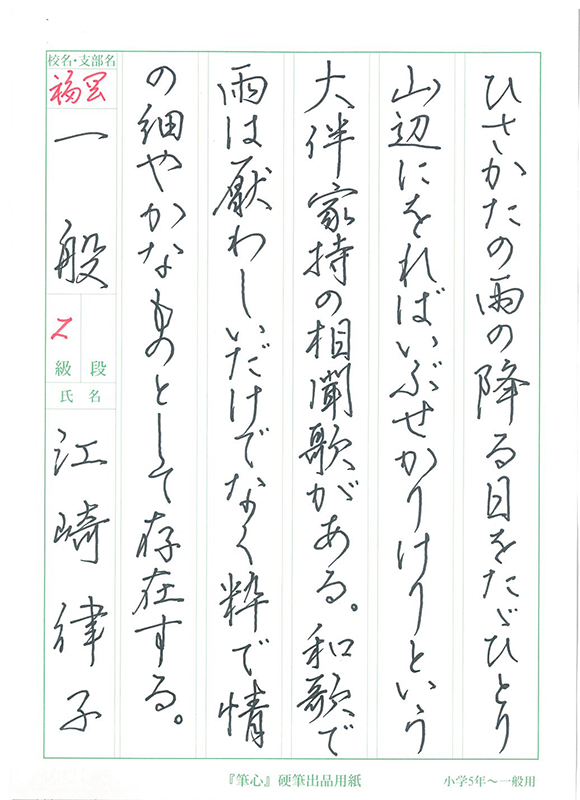 ひさかたの雨の降る日をたゞひとり
山辺にをればいぶせかりけりという
大伴家持の相聞歌がある。和歌で
雨は厭わしいだけでなく粋で情
の細やかなものとして存在する。
校名・支部名
福岡
一般
級 段
氏名
江崎律子
『筆心』硬筆出品用紙
小学5年〜一般用